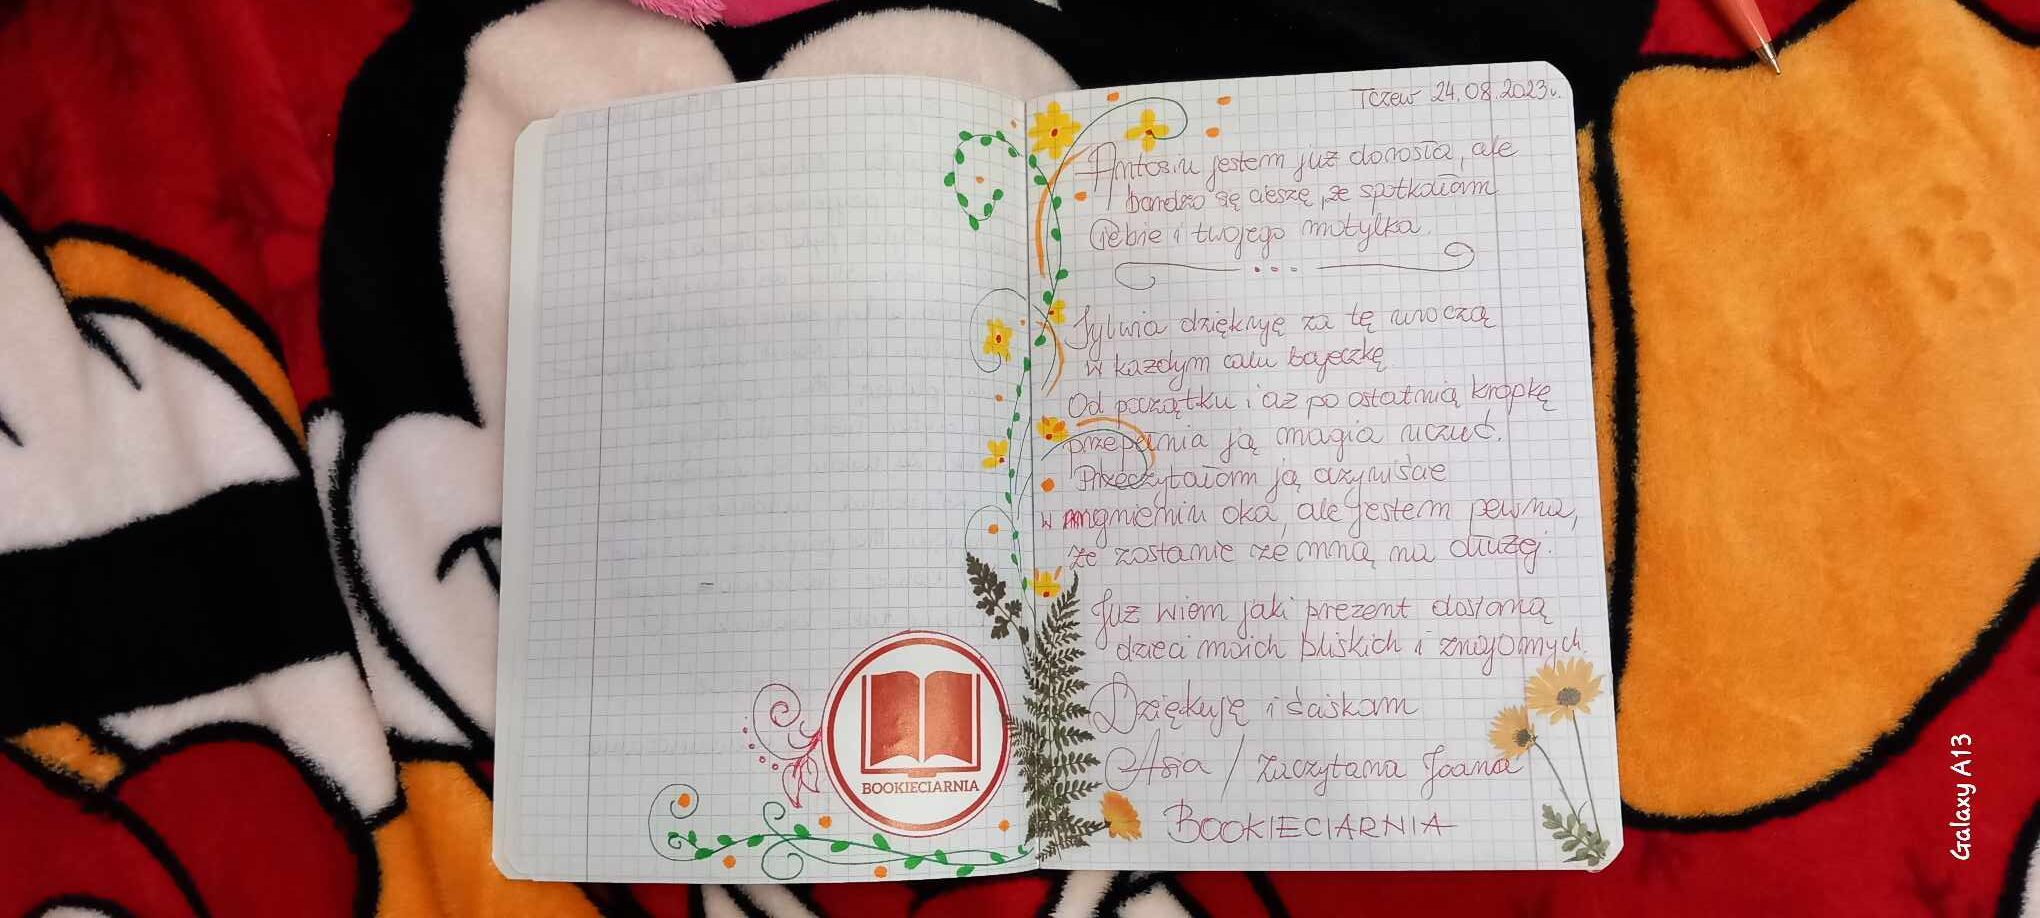 Tczew 24.08.2023r.
Antosiu jestem już dorosła, ale
bardzo się cieszę, że spotkałam
Ciebie i twojego motylka.
Sylwia dziękuję za tę uroczą
w każdym calu bajeczkę
Od początku i aż po ostatnią kropkę
przepełnia ją magia uczuć.
Przeczytałam ją oczywiście
w mgnieniu oka, ale jestem pewna,
że zostanie ze mną na dłużej.
Już wiem jaki prezent dostaną
dzieci moich bliskich i znajomych.
Dziękuję i ściskam
Asia / Zaczytana Joana
BOOKIECIARNIA
BOOKIECIARNIA
Galaxy A13